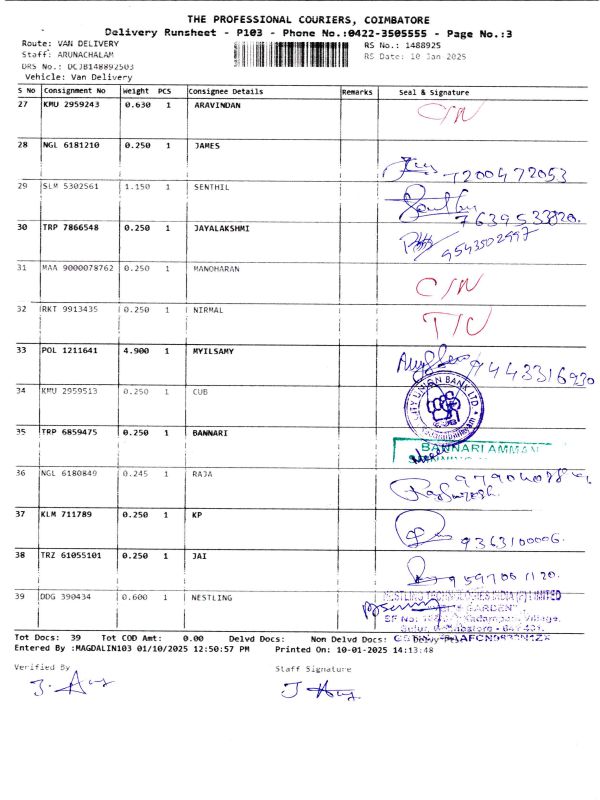 THE PROFESSIONAL COURIERS, COIMBATORE
Delivery Runsheet - P103 - Phone No.:0422-3505555 - Page No.:3
Route: VAN DELIVERY RS No.: 1488925
Staff: ARUNACHALAM RS Date: 10 Jan 2025
DRS No.: DCJB148892503
Vehicle: Van Delivery
S No Consignment No Weight PCS Consignee Details Remarks Seal & Signature
27 KMU 2959243 0.630 1 ARAVINDAN C/N
28 NGL 6181210 0.250 1 JAMES 7200472053
29 SLM 5302561 1.150 1 SENTHIL
30 TRP 7866548 0.250 1 JAYALAKSHMI 9543502997
31 MAA 9000078762 0.250 1 MANOHARAN C/N
32 RKT 9913435 0.250 1 NIRMAL
33 POL 1211641 4.900 1 MYILSAMY 9443316930
34 KMU 2959513 0.250 1 CUB CITY UNION BANK LTD.
35 TRP 6859475 0.250 1 BANNARI BANNARI AMMAN
36 NGL 6180849 0.245 1 RAJA
37 KLM 711789 0.250 1 KP 9363100006.
38 TRZ 61055101 0.250 1 JAI 9597001120.
39 DDG 390434 0.600 1 NESTLING NESTLING TECHNOLOGIES INDIA (P) LIMITED
GARDEN"
Kadampadi Village,
Tot Docs: 39 Tot COD Amt: 0.00 Delvd Docs: Non Delvd Docs:
Entered By :MAGDALIN103 01/10/2025 12:50:57 PM Printed On: 10-01-2025 14:13:48
Verified By Staff Signature